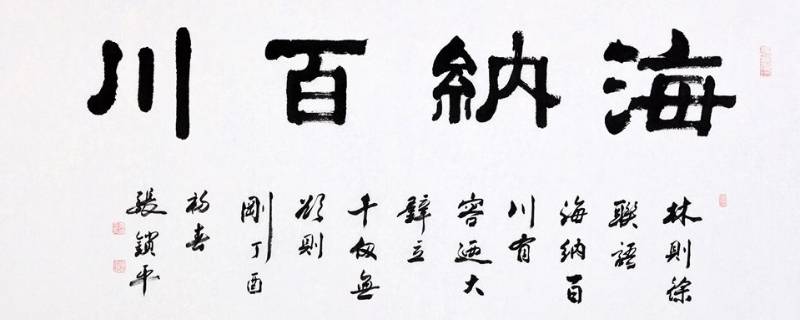 海納百川
林則徐
聯語
海納百
川有
容迺大
壁立
千仞無
欲則
剛丁酉
初春
張鎖平